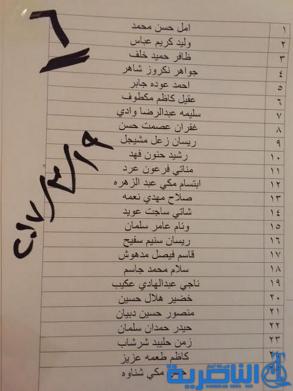 ٦
٢٠١٧/٣/٩
١ امل حسن محمد
٢ وليد كريم عباس
٣ ظافر حميد خلف
٤ جواهر نكروز شاهر
٥ احمد عوده جابر
٦ عقيل كاظم مكطوف
٧ سليمه عبدالرضا وادي
٨ غفران عصمت حسن
٩ ريسان زعل مشيجل
١٠ رشيد حنون فهد
١١ مناتي فرعون عرد
١٢ ابتسام مكي عبد الزهره
١٣ صلاح مهدي نعمه
١٤ شاتي ساجت عويد
١٥ وئام عامر سلمان
١٦ ريسان سنيم سفيح
١٧ قاسم فيصل مدهوش
١٨ سلام محمد جاسم
١٩ ناجي عبدالهادي عكيب
٢٠ خضير هلال حسين
٢١ منصور حسين دبيان
٢٢ حيدر حمدان سلمان
٢٣ زمن حليبد شرشاب
كاظم طعمه عزيز
مكي شناوه
الناصرية